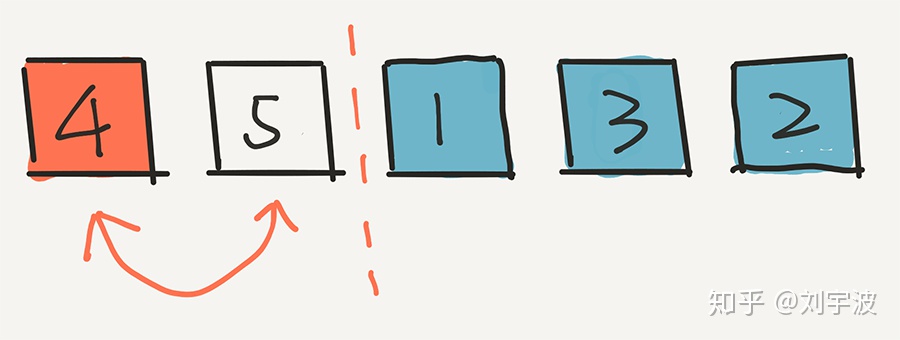 4 5 1 3 2
知乎 @刘宇波